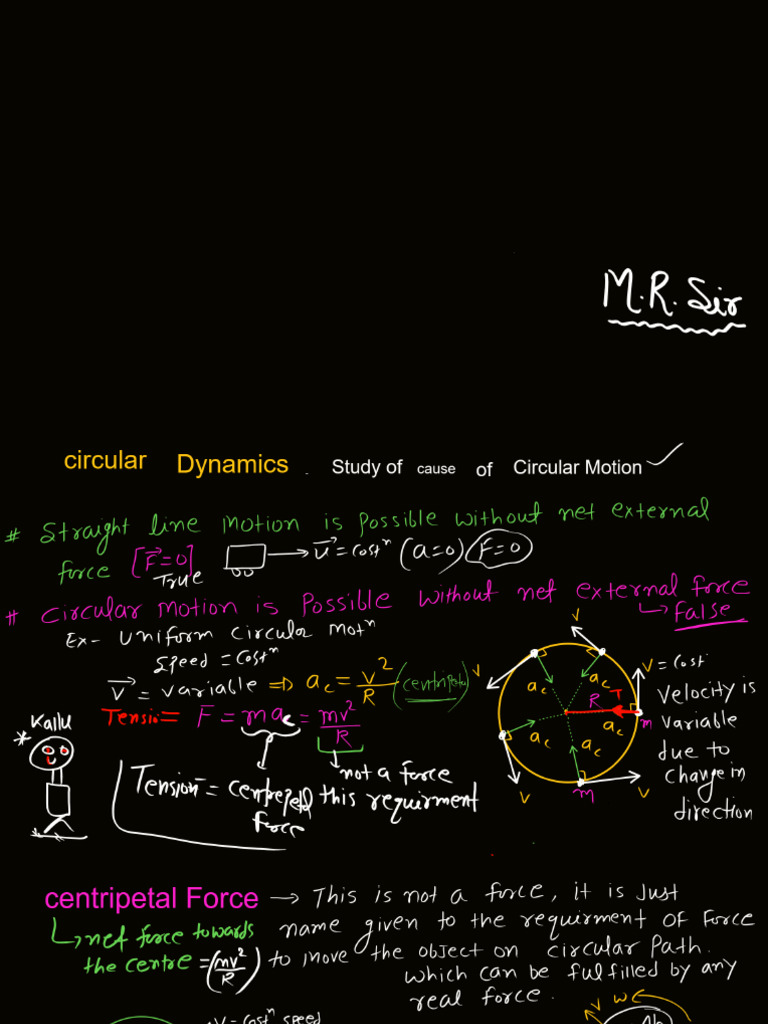 M.R. Sir
circular Dynamics - Study of cause of Circular Motion
# Straight line motion is possible without net external
force [F⃗=0] → v⃗ = costⁿ (a=0) F=0
True
# Circular motion is Possible without net external force
↳ false
Ex- Uniform Circular motⁿ
speed = costⁿ
v⃗ = variable ⇒ a_c = v²/R (centripetal)
Tension = F = ma_c = mv²/R
not a force
this requirment
Tension = centripetal
force
Kallu
*
V
V
V = cost
a_c
a_c
R
T
m
a_c
a_c
a_c
V
m
V
Velocity is
variable
due to
change in
direction
centripetal Force → This is not a force, it is Just
name given to the requirment of Force
to move the object on circular Path.
which can be fulfilled by any
real force.
↳ net force towards
the centre = (mv²/R)
V = costⁿ speed
V
w